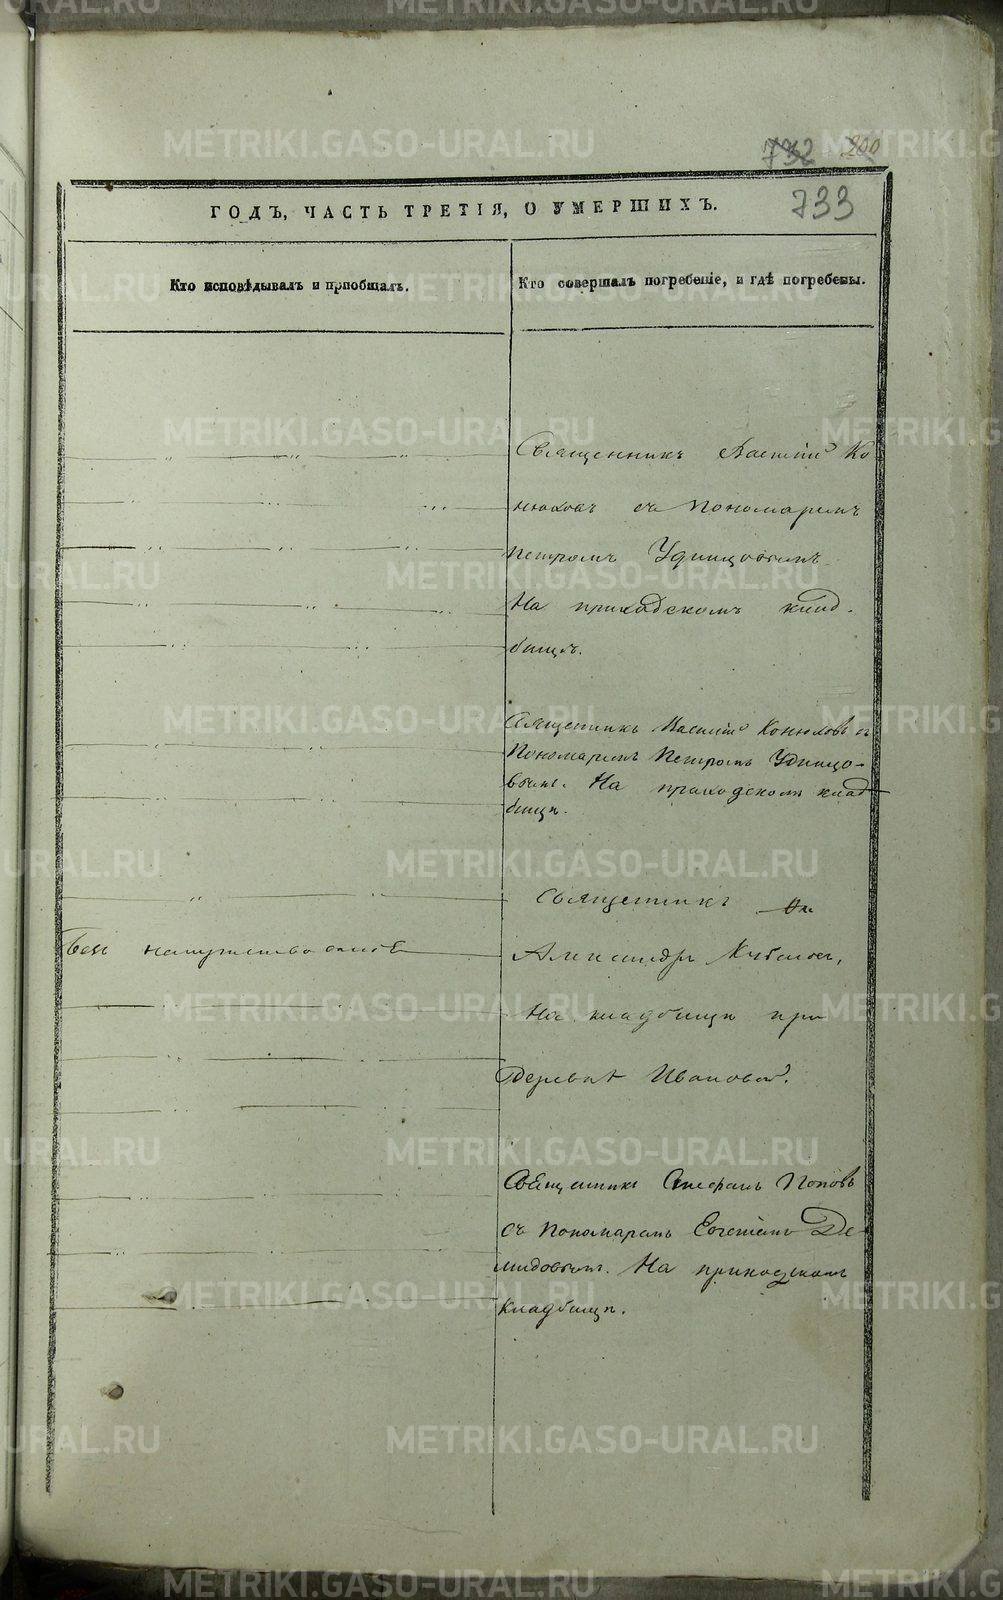 732 200
733
ГОДЪ, ЧАСТЬ ТРЕТІЯ, О УМЕРШИХЪ.
Кто исповѣдывалъ и пріобщалъ.
Кто совершалъ погребеніе, и гдѣ погребены.
Священникъ Василій Ко
нюховъ съ пономаремъ
Петромъ Удинцовымъ
На приходскомъ клад-
бищѣ.
Священникъ Василій Конюховъ съ
Пономаремъ Петромъ Удинцо-
вымъ. На приходскомъ клад
бищѣ.
Священникъ
Безъ напутствованія
Александръ
На кладбищѣ при
Деревнѣ Ивановой.
Священникъ Стефанъ Поповъ
съ Пономаремъ Евгеніемъ Де-
мидовымъ. На приходскомъ
Кладбищѣ.
METRIKI.GASO-URAL.RU